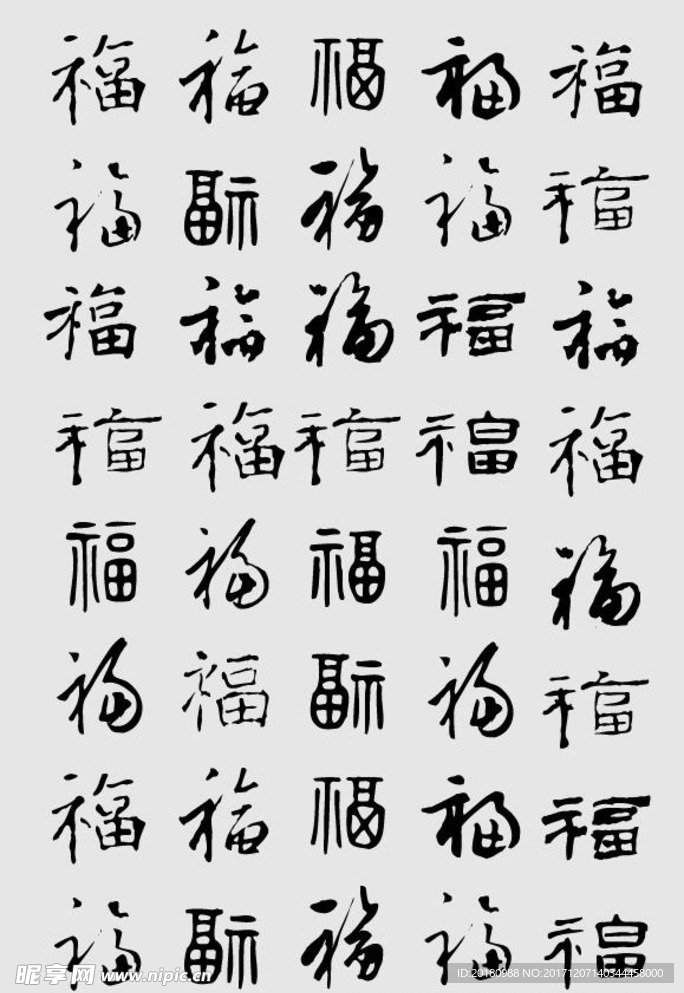 福福福福福
福福福福福
福福福福福
福福福福福
福福福福福
福福福福福
福福福福福
福福福福福
昵享网 www.nipic.cn
ID:20180988 NO:20171207140344458000